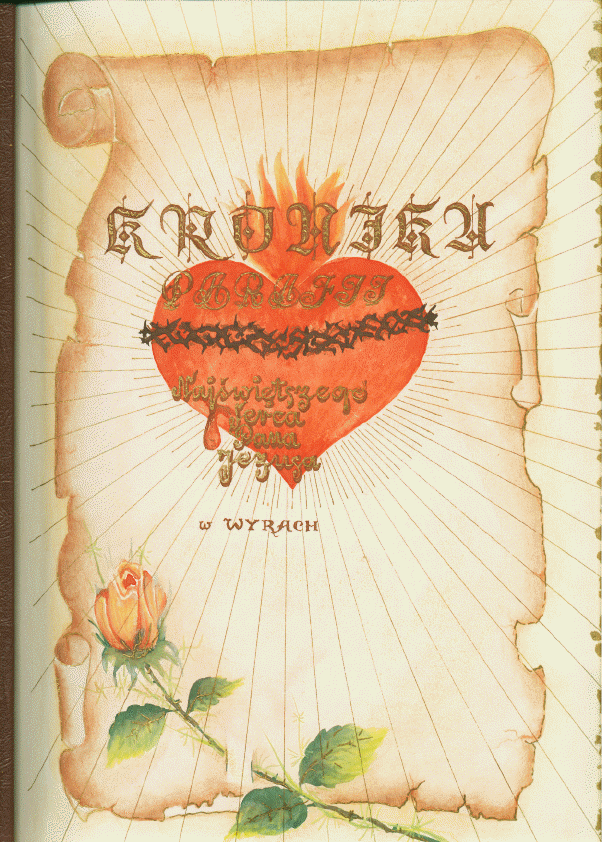 KRONIKA
PARAFII
Najświętszego
Serca
Pana
Jezusa
w WYRACH